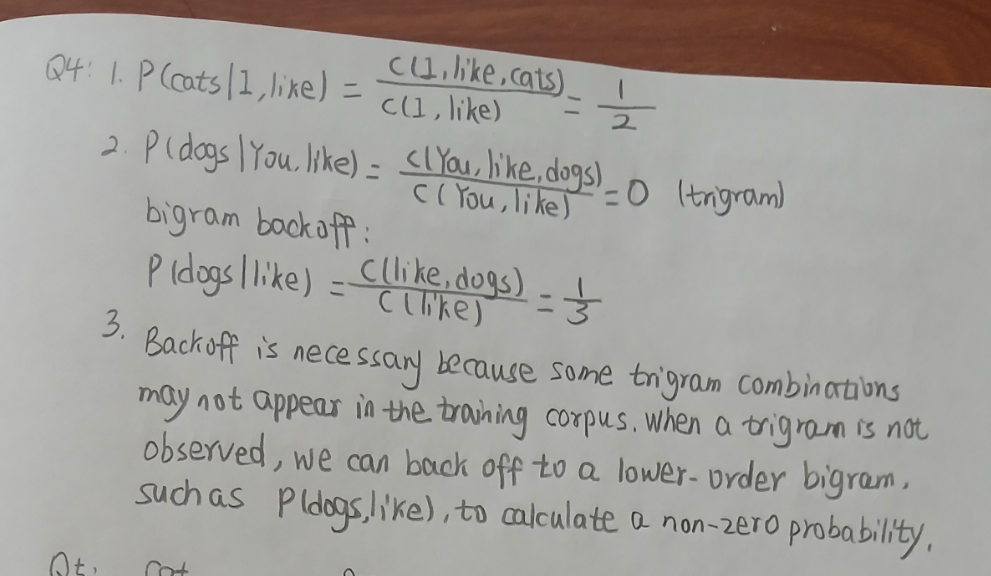 Q4: 1. P(cats|I, like) = C(I, like, cats) / C(I, like) = 1/2
2. P(dogs|You, like) = C(You, like, dogs) / C(You, like) = 0 (trigram)
bigram backoff:
P(dogs|like) = C(like, dogs) / C(like) = 1/3
3. Backoff is necessary because some trigram combinations
may not appear in the training corpus. when a trigram is not
observed, we can back off to a lower-order bigram,
such as P(dogs, like), to calculate a non-zero probability.